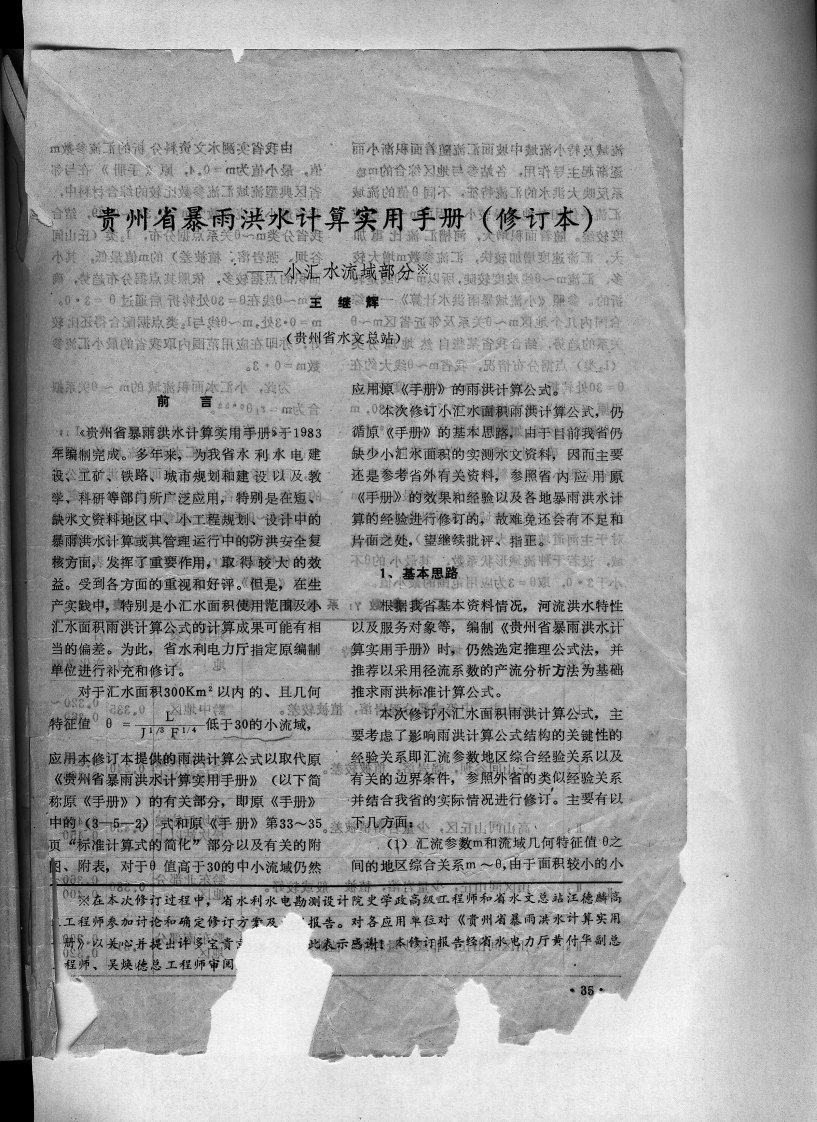 贵州省暴雨洪水计算实用手册（修订本）
——小汇水流域部分※
王继辉
（贵州省水文总站）
前言
《贵州省暴雨洪水计算实用手册》于1983
年编制完成。多年来，为我省水利水电建
设、工矿、铁路、城市规划和建设以及教
学、科研等部门所广泛应用，特别是在短、
缺水文资料地区中、小工程规划、设计中的
暴雨洪水计算或其管理运行中的防洪安全复
核方面，发挥了重要作用，取得较大的效
益。受到各方面的重视和好评。但是，在生
产实践中，特别是小汇水面积使用范围及小
汇水面积雨洪计算公式的计算成果可能有相
当的偏差。为此，省水利电力厅指定原编制
单位进行补充和修订。
对于汇水面积300Km²以内的、且几何
特征值 θ = L / (J^{1/3} F^{1/4}) 低于30的小流域，
应用本修订本提供的雨洪计算公式以取代原
《贵州省暴雨洪水计算实用手册》（以下简
称原《手册》）的有关部分，即原《手册》
中的（3—5—2）式和原《手册》第33~35
页“标准计算式的简化”部分以及有关的附
图、附表，对于θ值高于30的中小流域仍然
应用原《手册》的雨洪计算公式。
本次修订小汇水面积雨洪计算公式，仍
循原《手册》的基本思路，由于目前我省仍
缺少小汇水面积的实测水文资料，因而主要
还是参考省外有关资料，参照省内应用原
《手册》的效果和经验以及各地暴雨洪水计
算的经验进行修订的，故难免还会有不足和
片面之处，望继续批评、指正。
1、基本思路
根据我省基本资料情况，河流洪水特性
以及服务对象等，编制《贵州省暴雨洪水计
算实用手册》时，仍然选定推理公式法，并
推荐以采用径流系数的产流分析方法为基础
推求雨洪标准计算公式。
本次修订小汇水面积雨洪计算公式，主
要考虑了影响雨洪计算公式结构的关键性的
经验关系即汇流参数地区综合经验关系以及
有关的边界条件，参照外省的类似经验关系
并结合我省的实际情况进行修订。主要有以
下几方面：
（1）汇流参数m和流域几何特征值θ之
间的地区综合关系m~θ，由于面积较小的小
※在本次修订过程中，省水利水电勘测设计院史学政高级工程师和省水文总站江德麟高
工程师参加讨论和确定修订方案及 报告。对各应用单位对《贵州省暴雨洪水计算实用
册》以关心并提出许多宝贵 此表示感谢！本修订报告经省水电力厅黄付华副总
程师、吴焕德总工程师审阅
·35·